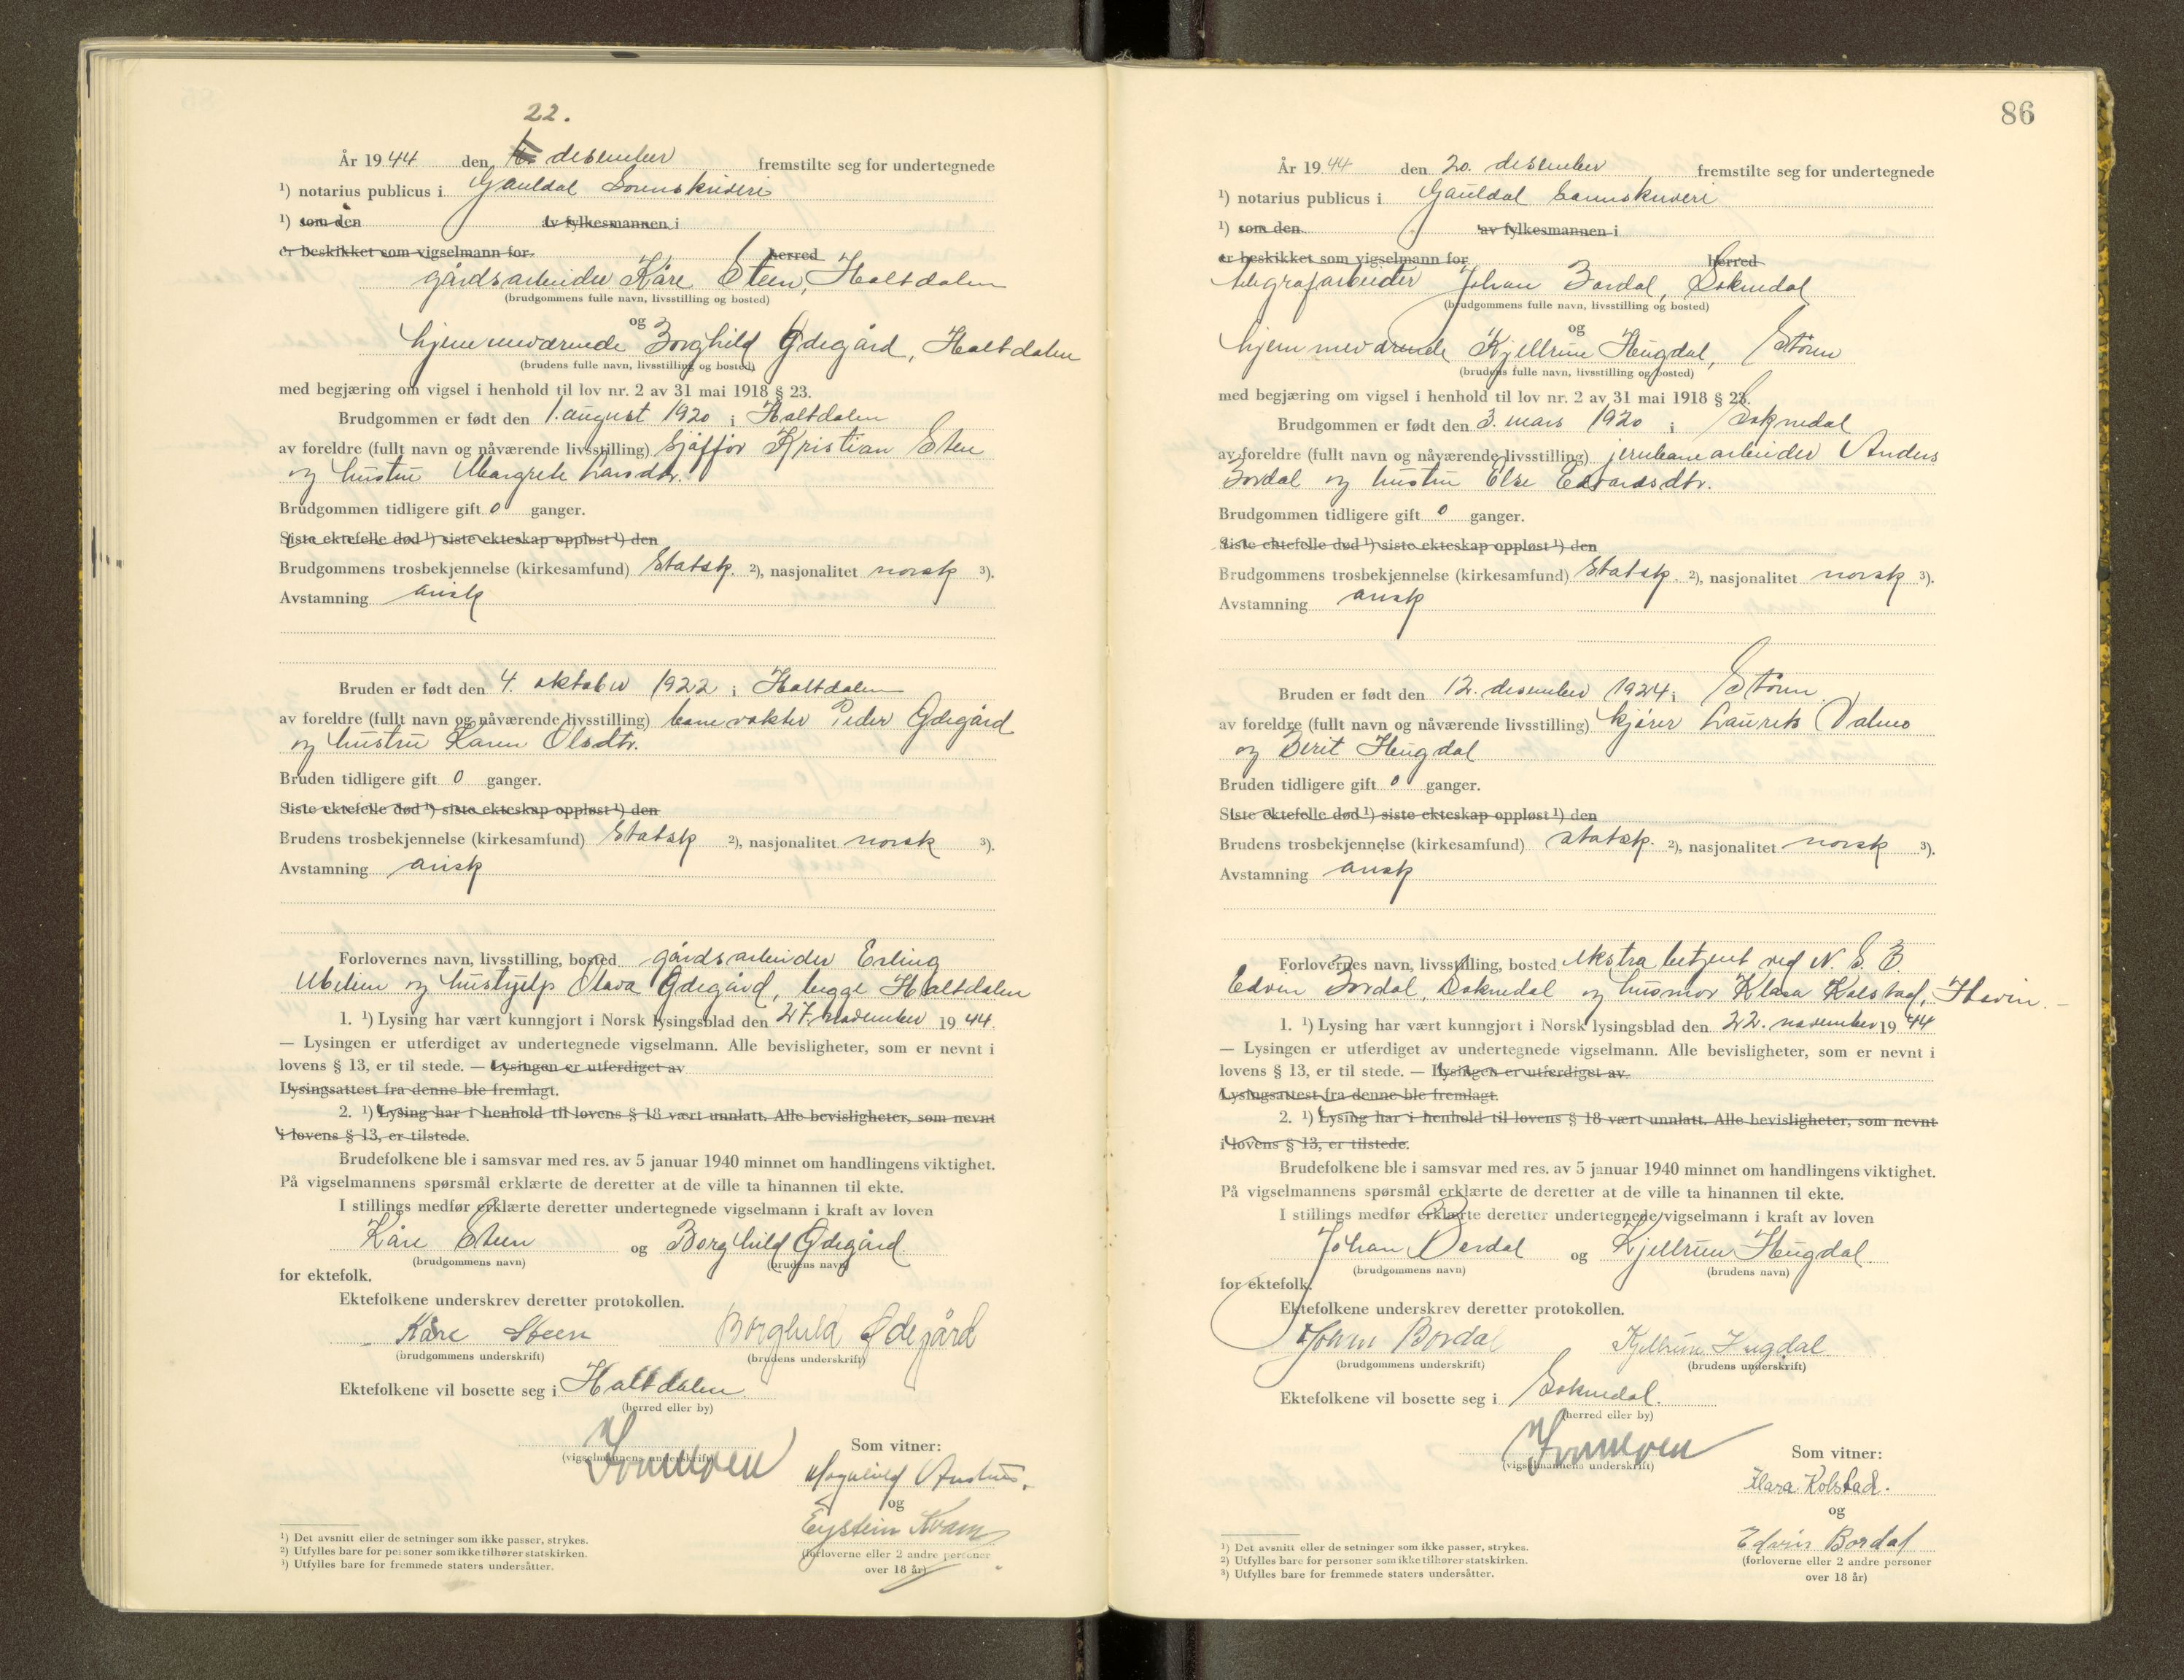 22.
År 1944 den desember fremstilte seg for undertegnede
¹) notarius publicus i Gauldal Sorenskriveri
¹) som den av fylkesmannen i
er beskikket som vigselmann for herred
gårdsarbeider Kåre Steen, Haltdalen
(brudgommens fulle navn, livsstilling og bosted)
og
hjemmeværende Borghild Ødegård, Haltdalen
(brudens fulle navn, livsstilling og bosted)
med begjæring om vigsel i henhold til lov nr. 2 av 31 mai 1918 § 23.
Brudgommen er født den 1. august 1920 i Haltdalen
av foreldre (fullt navn og nåværende livsstilling) sjåffør Kristian Sten
og hustru Margrete Larsdtr.
Brudgommen tidligere gift 0 ganger.
Siste ektefelle død ¹) siste ekteskap oppløst ¹) den
Brudgommens trosbekjennelse (kirkesamfund) Statsk. ²), nasjonalitet norsk ³).
Avstamning arisk
Bruden er født den 4. oktober 1922 i Haltdalen
av foreldre (fullt navn og nåværende livsstilling) banevokter Peder Ødegård
og hustru Karen Olsdtr.
Bruden tidligere gift 0 ganger.
Siste ektefelle død ¹) siste ekteskap oppløst ¹) den
Brudens trosbekjennelse (kirkesamfund) Statsk ²), nasjonalitet norsk ³).
Avstamning arisk
Forlovernes navn, livsstilling, bosted gårdsarbeider Erling
og hushjelp Olava Ødegård, begge Haltdalen
1. ¹) Lysing har vært kunngjort i Norsk lysingsblad den 27. november 1944.
— Lysingen er utferdiget av undertegnede vigselmann. Alle bevisligheter, som er nevnt i
lovens § 13, er til stede. — Lysingen er utferdiget av
Lysingsattest fra denne ble fremlagt.
2. ¹) Lysing har i henhold til lovens § 18 vært unnlatt. Alle bevisligheter, som nevnt
i lovens § 13, er tilstede.
Brudefolkene ble i samsvar med res. av 5 januar 1940 minnet om handlingens viktighet.
På vigselmannens spørsmål erklærte de deretter at de ville ta hinannen til ekte.
I stillings medfør erklærte deretter undertegnede vigselmann i kraft av loven
Kåre Steen og Borghild Ødegård
(brudgommens navn) (brudens navn)
for ektefolk.
Ektefolkene underskrev deretter protokollen.
Kåre Steen Borghild Ødegård
(brudgommens underskrift) (brudens underskrift)
Ektefolkene vil bosette seg i Haltdalen
(herred eller by)
Som vitner:
(vigselmannens underskrift)
og
Eystein Kvam
(forloverne eller 2 andre personer
over 18 år)
¹) Det avsnitt eller de setninger som ikke passer, strykes.
²) Utfylles bare for personer som ikke tilhører statskirken.
³) Utfylles bare for fremmede staters undersåtter.
86
År 1944 den 20. desember fremstilte seg for undertegnede
¹) notarius publicus i Gauldal Sorenskriveri
¹) som den av fylkesmannen i
er beskikket som vigselmann for herred
telegrafarbeider Johan Bordal, Soknedal
(brudgommens fulle navn, livsstilling og bosted)
og
hjemmeværende Kjellrun Haugdal, Støren
(brudens fulle navn, livsstilling og bosted)
med begjæring om vigsel i henhold til lov nr. 2 av 31 mai 1918 § 23.
Brudgommen er født den 3. mars 1920 i Soknedal
av foreldre (fullt navn og nåværende livsstilling) jernbanearbeider Anders
Bordal og hustru Else Edvardsdtr.
Brudgommen tidligere gift 0 ganger.
Siste ektefelle død ¹) siste ekteskap oppløst ¹) den
Brudgommens trosbekjennelse (kirkesamfund) Statsk. ²), nasjonalitet norsk ³).
Avstamning arisk
Bruden er født den 12. desember 1924 i Støren
av foreldre (fullt navn og nåværende livsstilling) kjører Laurits Valmo
og Berit Haugdal
Bruden tidligere gift 0 ganger.
Siste ektefelle død ¹) siste ekteskap oppløst ¹) den
Brudens trosbekjennelse (kirkesamfund) statsk. ²), nasjonalitet norsk ³).
Avstamning arisk
Forlovernes navn, livsstilling, bosted ekstrabetjent ved N. S. B.
Edvin Bordal, Soknedal og husmor Klara Kolstad, Hovin.
1. ¹) Lysing har vært kunngjort i Norsk lysingsblad den 22. november 1944
— Lysingen er utferdiget av undertegnede vigselmann. Alle bevisligheter, som er nevnt i
lovens § 13, er til stede. — Lysingen er utferdiget av
Lysingsattest fra denne ble fremlagt.
2. ¹) Lysing har i henhold til lovens § 18 vært unnlatt. Alle bevisligheter, som nevnt
i lovens § 13, er tilstede.
Brudefolkene ble i samsvar med res. av 5 januar 1940 minnet om handlingens viktighet.
På vigselmannens spørsmål erklærte de deretter at de ville ta hinannen til ekte.
I stillings medfør erklærte deretter undertegnede vigselmann i kraft av loven
Johan Bordal og Kjellrun Haugdal
(brudgommens navn) (brudens navn)
for ektefolk.
Ektefolkene underskrev deretter protokollen.
Johan Bordal Kjellrun Haugdal
(brudgommens underskrift) (brudens underskrift)
Ektefolkene vil bosette seg i Soknedal.
(herred eller by)
Som vitner:
(vigselmannens underskrift)
Klara Kolstad.
og
Edvin Bordal
(forloverne eller 2 andre personer
over 18 år)
¹) Det avsnitt eller de setninger som ikke passer, strykes.
²) Utfylles bare for personer som ikke tilhører statskirken.
³) Utfylles bare for fremmede staters undersåtter.